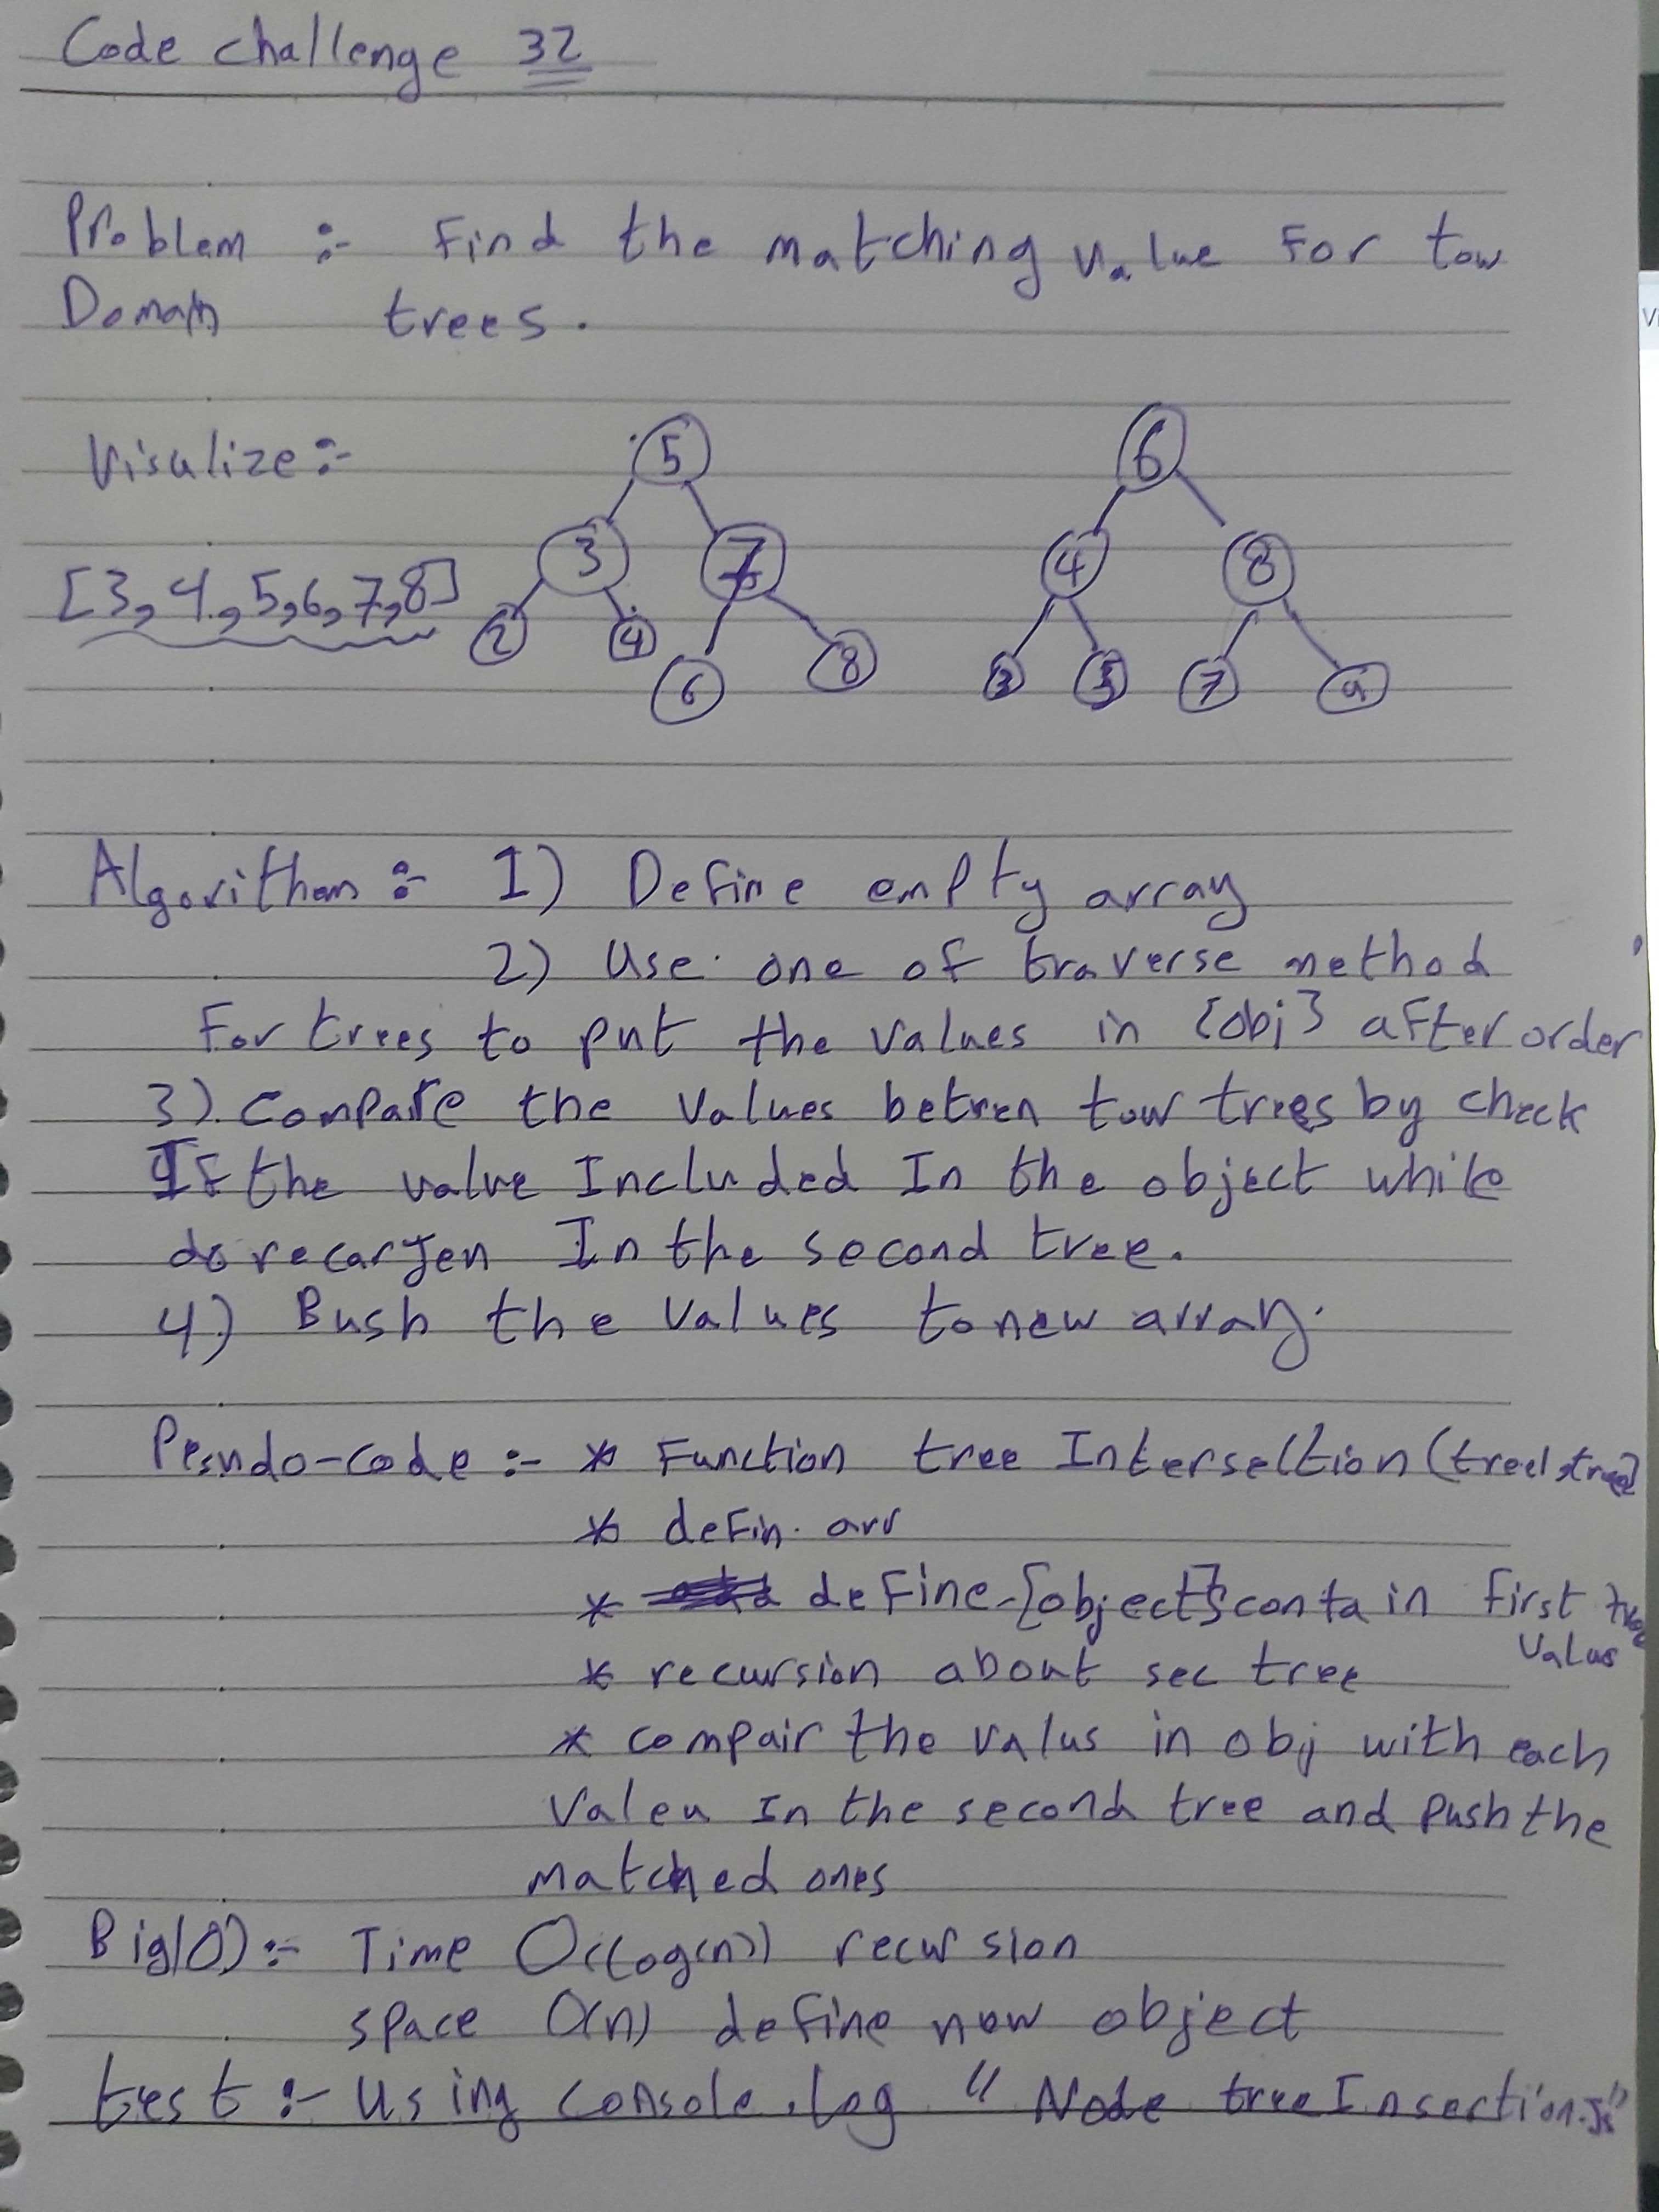 Code challenge 32
Problem :- Find the matching value for tow
Domain trees.
Visulize :-
5
6
3
7
4
8
[3, 4, 5, 6, 7, 8]
2
4
6
8
3
5
7
9
Algorithem :- 1) Define empty array
2) Use one of traverse method
For trees to put the values in {obj} after order
3) Compare the Values betwen tow trees by check
If the value Included In the object while
do recarjen In the second tree.
4) Bush the values to new array.
Pesudo-code :- * Function tree Intersection (tree1, tree2)
* defin. arr
* define {object} contain first tree
Valus
* recursion about sec tree
* compair the Valus in obj with each
Valeu In the second tree and push the
matched ones
Big(O) :- Time O(log(n)) recursion
space O(n) define new object
test :- Using console.log " Node treeInsection.js"